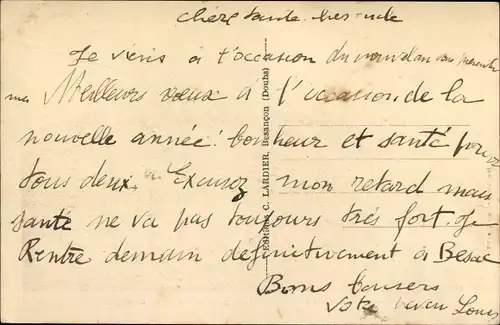 chère tante
Je viens à l'occasion du nouvel an vous presenter
mes Meilleurs vœux à l'occasion de la
nouvelle année! bonheur et santé pour
tous deux. Excusez mon retard mais
santé ne va pas toujours très fort. Je
Rentre demain définitivement à Besac
Bons baisers
Votre neveu Louis
Edition C. LARDIER, Besançon (Doubs)